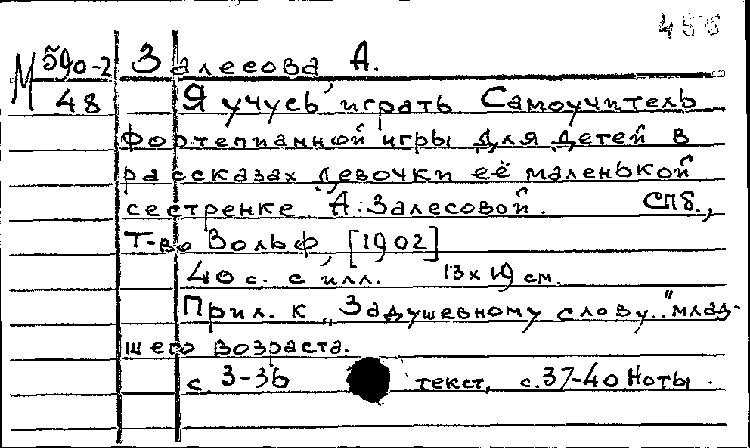 456
М 590-2 Залесова А.
48 Я учусь играть Самоучитель
фортепианной игры для детей в
рассказах девочки её маленькой
сестренке А. Залесовой. СПб.,
Т-во Вольф, [1902]
40 с. с илл. 13 х 19 см.
Прил. к „Задушевному слову" млад-
шего возраста.
с 3-36 текст, с. 37-40 Ноты